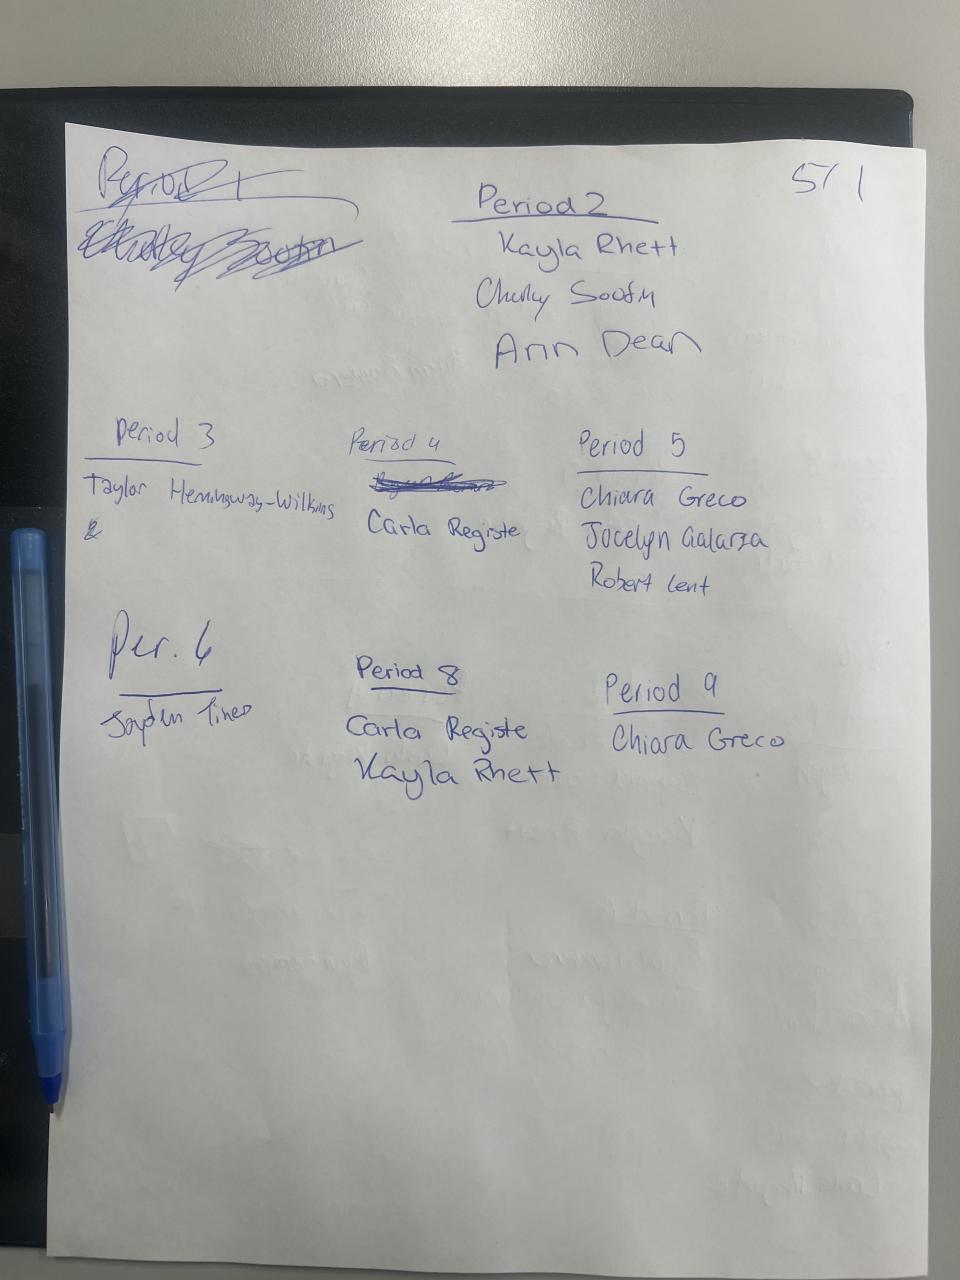 Period 1
5/1
Period 2
Kayla Rhett
Ann Dean
Period 3
Taylor Hemingway-Wilkins
Period 4
Carla Registe
Period 5
Chiara Greco
Jocelyn Galarza
Robert Lent
Per. 6
Jayden Tineo
Period 8
Carla Registe
Kayla Rhett
Period 9
Chiara Greco